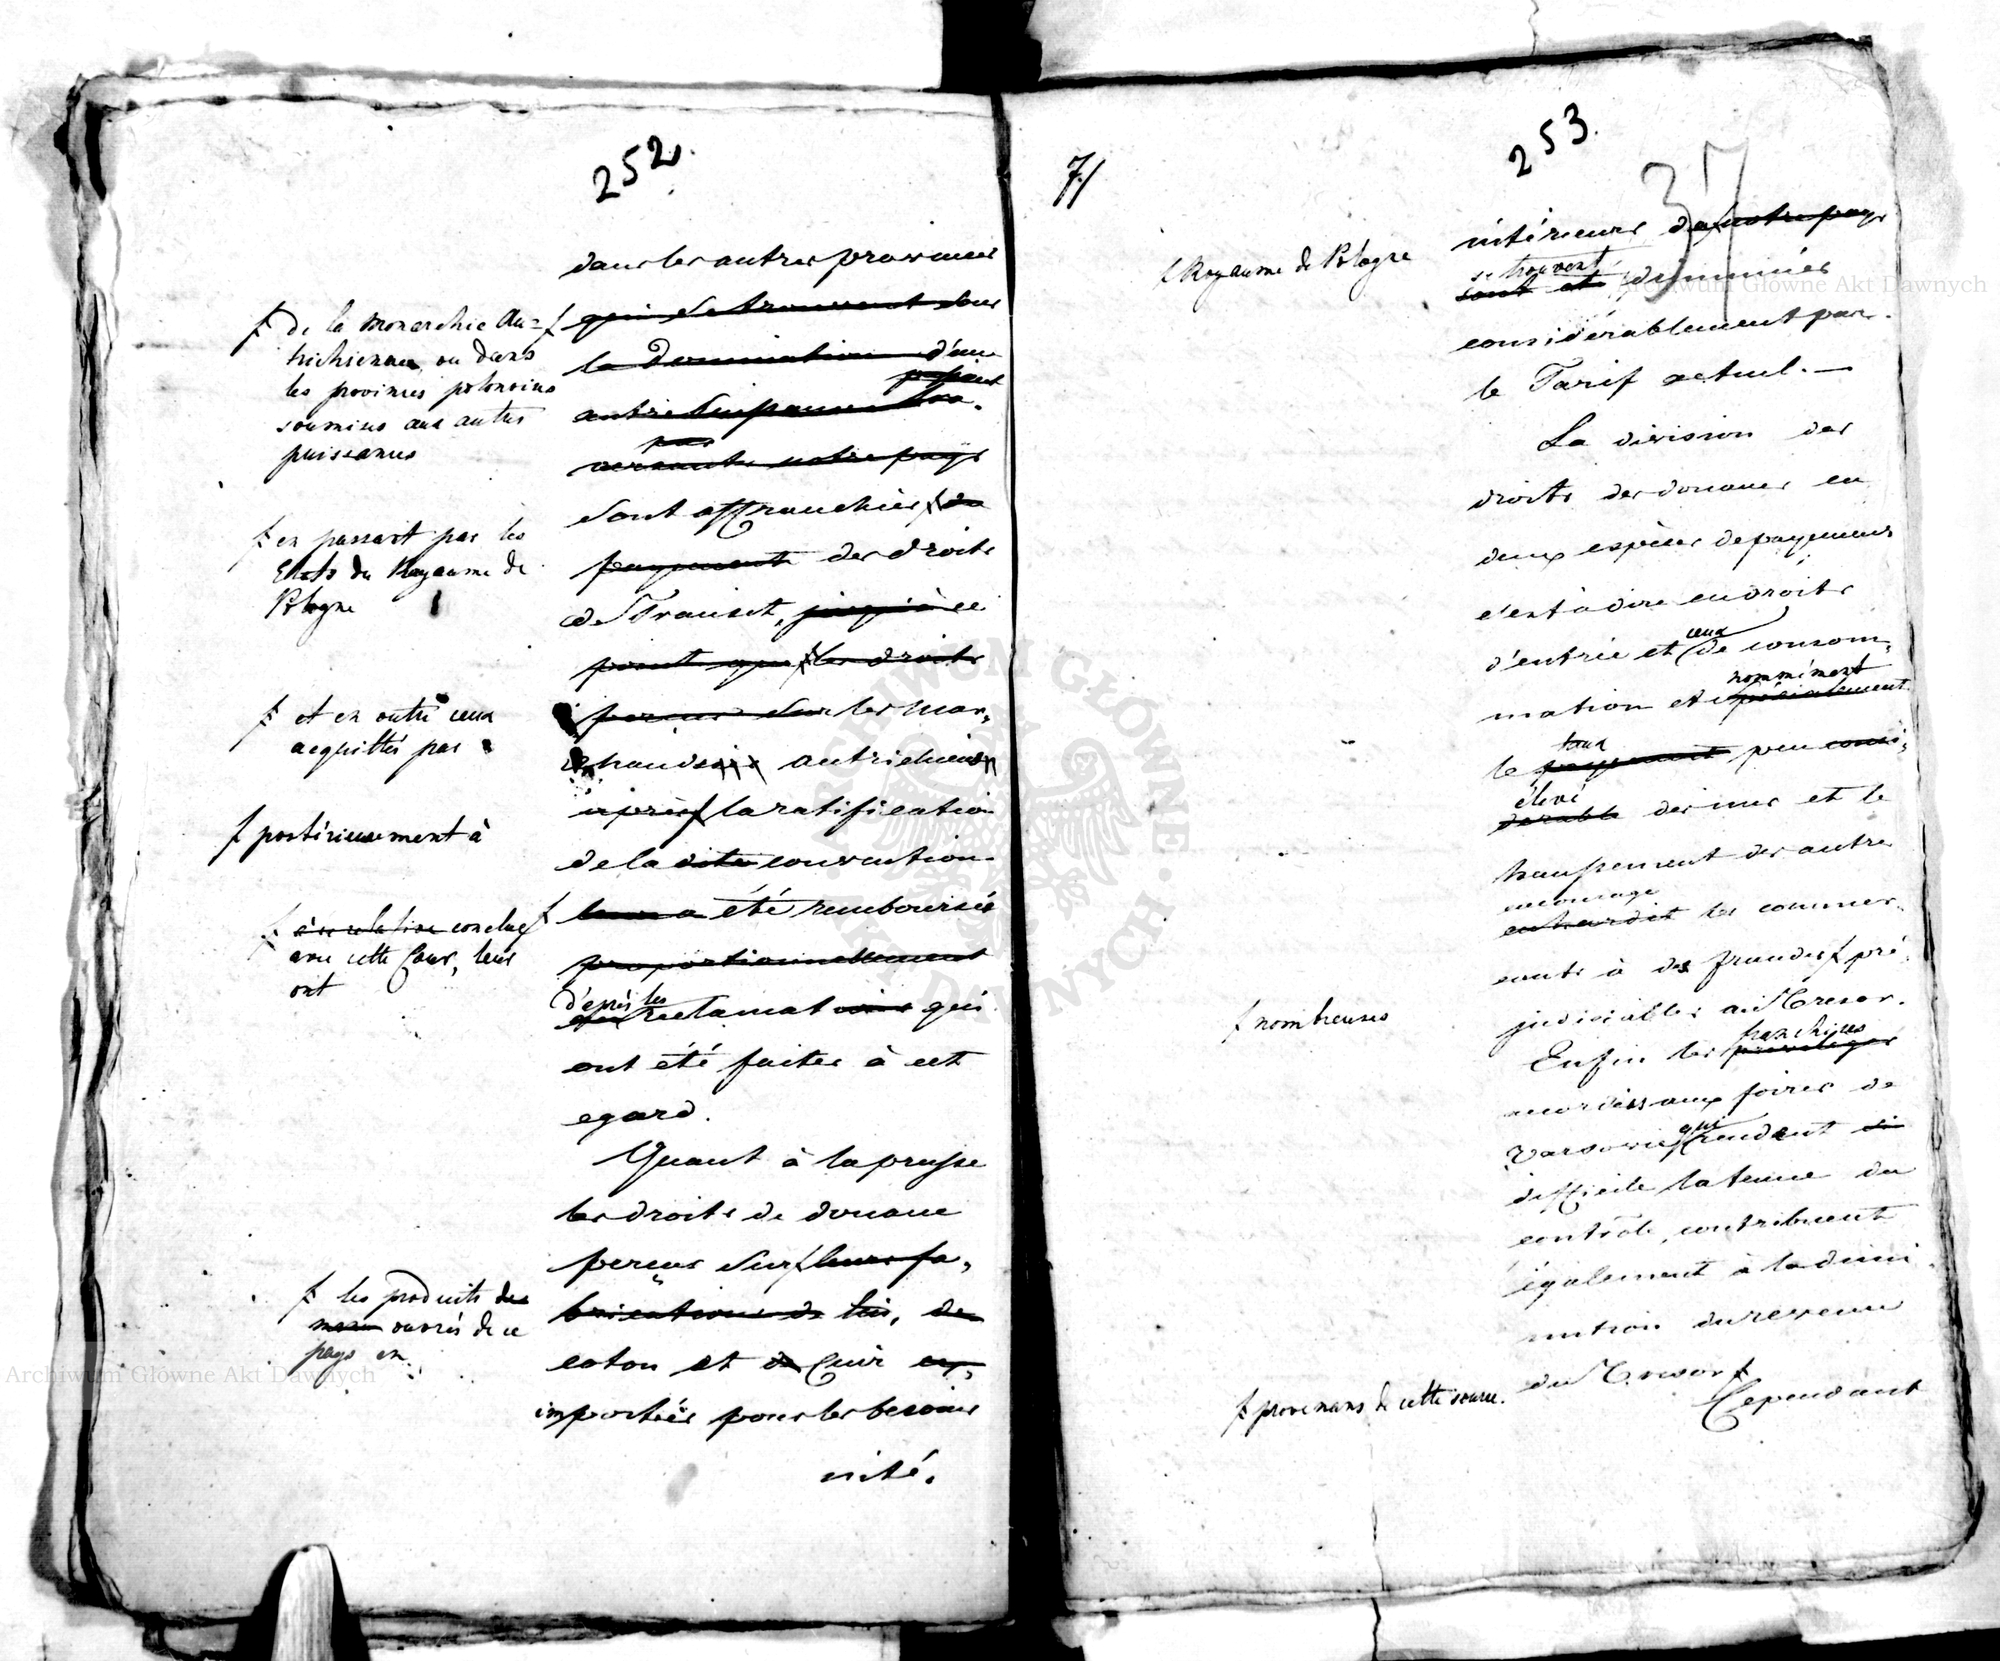 252.
dans les autres provinces
qui se trouvent sous
la Domination d'une
autre puissance tra-
passant
versants notre pays
par
sont affranchies du
payement des droits
de Transit, jusqu'à ce
point que les droits
perçus sur les mar-
chandises autrichiennes
après la ratification
de la dite convention
leur a été remboursés
proportionnellement
d'après les
reclamations qui
ont été faites à cet
egard.
Quant à la prusse
les droits de douane
perçus sur leurs fa-
brications de lin, de
coton et de Cuir ex-
importés pour les besoins
cité.
f de la Monarchie Au=
trichienne ou dans
les provinces polonoises
soumises aux autres
puissances
f en passant par les
Etats du Royaume de
Pologne
f et en outre ceux
acquittés par
f postérieurement à
f à ce relative conclue
avec cette Cour, leur
ont
f les produits des
ouvrés de ce
pays en
7/
253.
37
intérieurs de notre pays
f Royaume de Pologne
se trouvent
sont et diminués
considérablement par
le Tarif actuel. —
La division des
droits des douanes en
deux espèces de payemens
c'est à dire en droits
ceux
d'entrée et de consom-
nommément
mation et spécialement
taux
le payement peu consi-
élevé
derable des uns et le
haussement des autres
encourage
enhardit les commer-
cants à des fraudes f pré-
judiciables au Tresor.
f nombreuses
franchises
Enfin les privilèges
accordés aux foires de
qui
Varsovie rendent si
difficile la tenue du
contrôle, contribuent
également à la dimi-
nution du revenu
du Tresor f
f provenans de cette source.
Cependant
Archiwum Główne Akt Dawnych
Archiwum Główne Akt Dawnych
ARCHIWUM GŁÓWNE AKT DAWNYCH